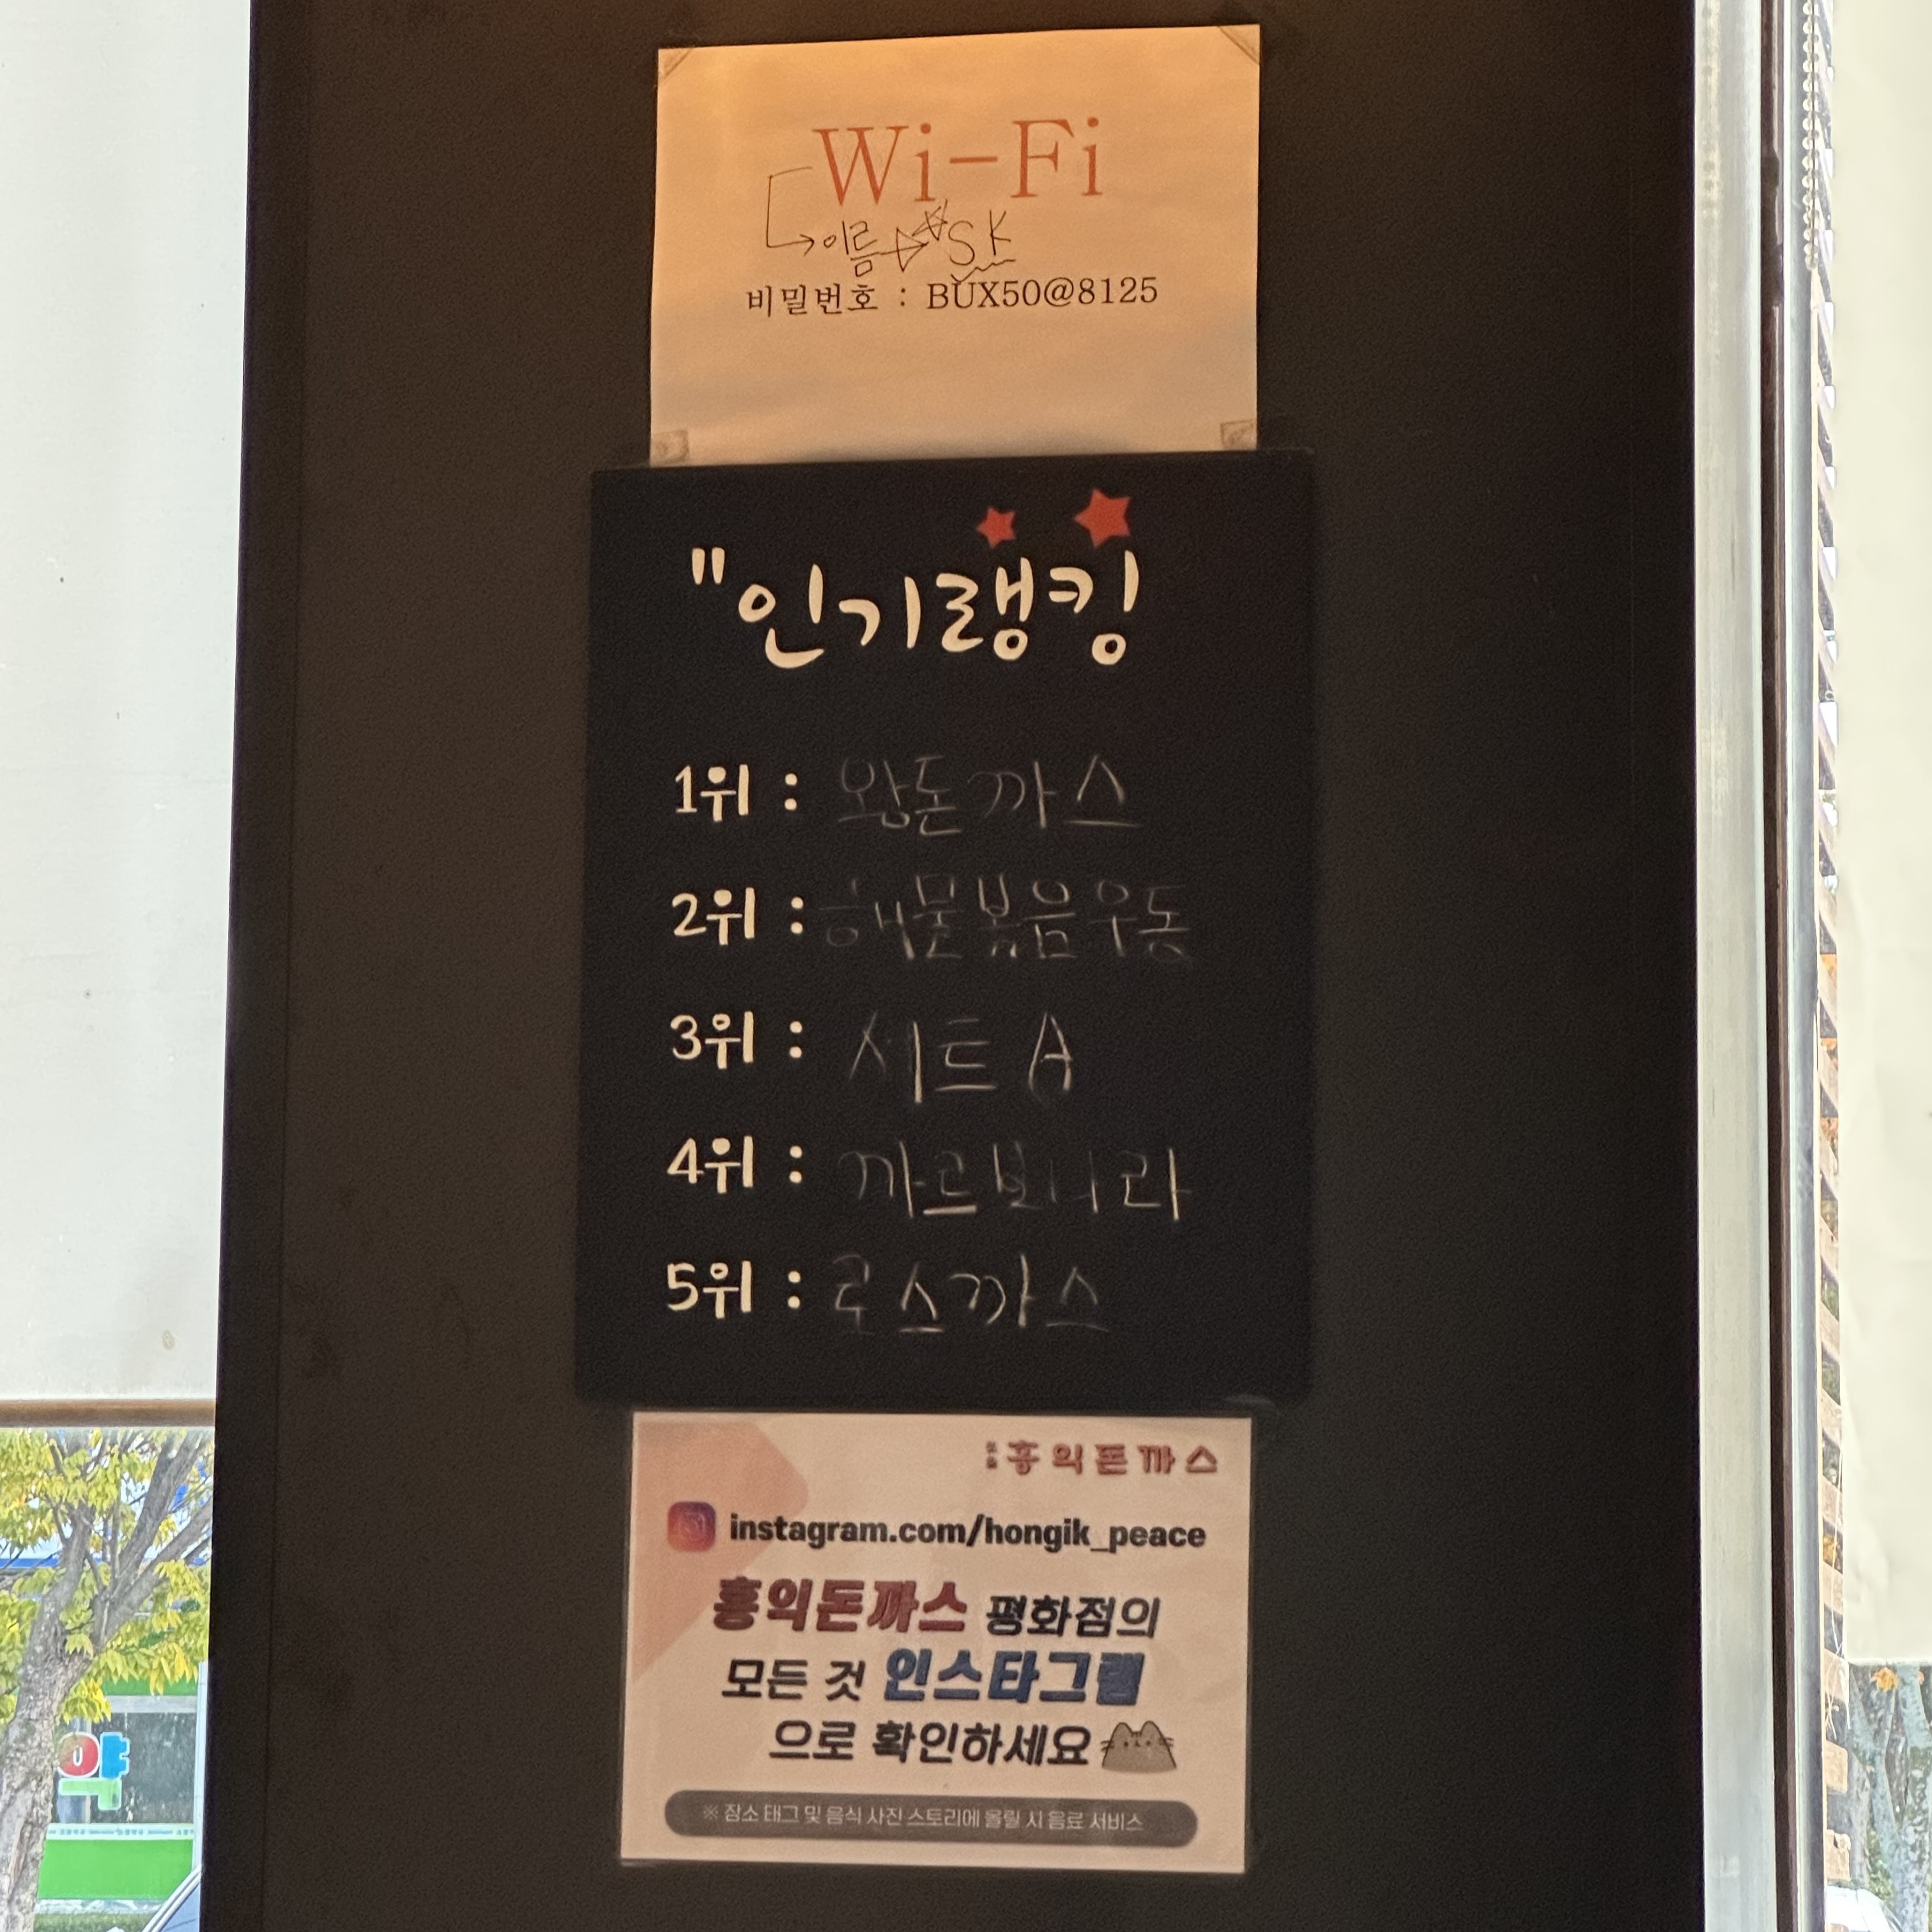 Wi-Fi
이름 SK
비밀번호 : BUX50@8125
"인기랭킹
1위 : 왕돈까스
2위 : 해물볶음우동
3위 : 세트 A
4위 : 까르보나라
5위 : 로스까스
홍익돈까스
instagram.com/hongik_peace
홍익돈까스 평화점의
모든 것 인스타그램
으로 확인하세요
※ 장소 태그 및 음식 사진 스토리에 올릴 시 음료 서비스
약